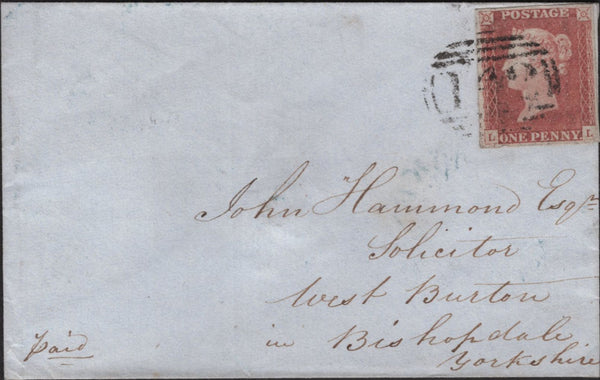 POSTAGE
L L
ONE PENNY
John Hammond Esqre
Solicitor
West Burton
in Bishopdale
Yorkshire
paid